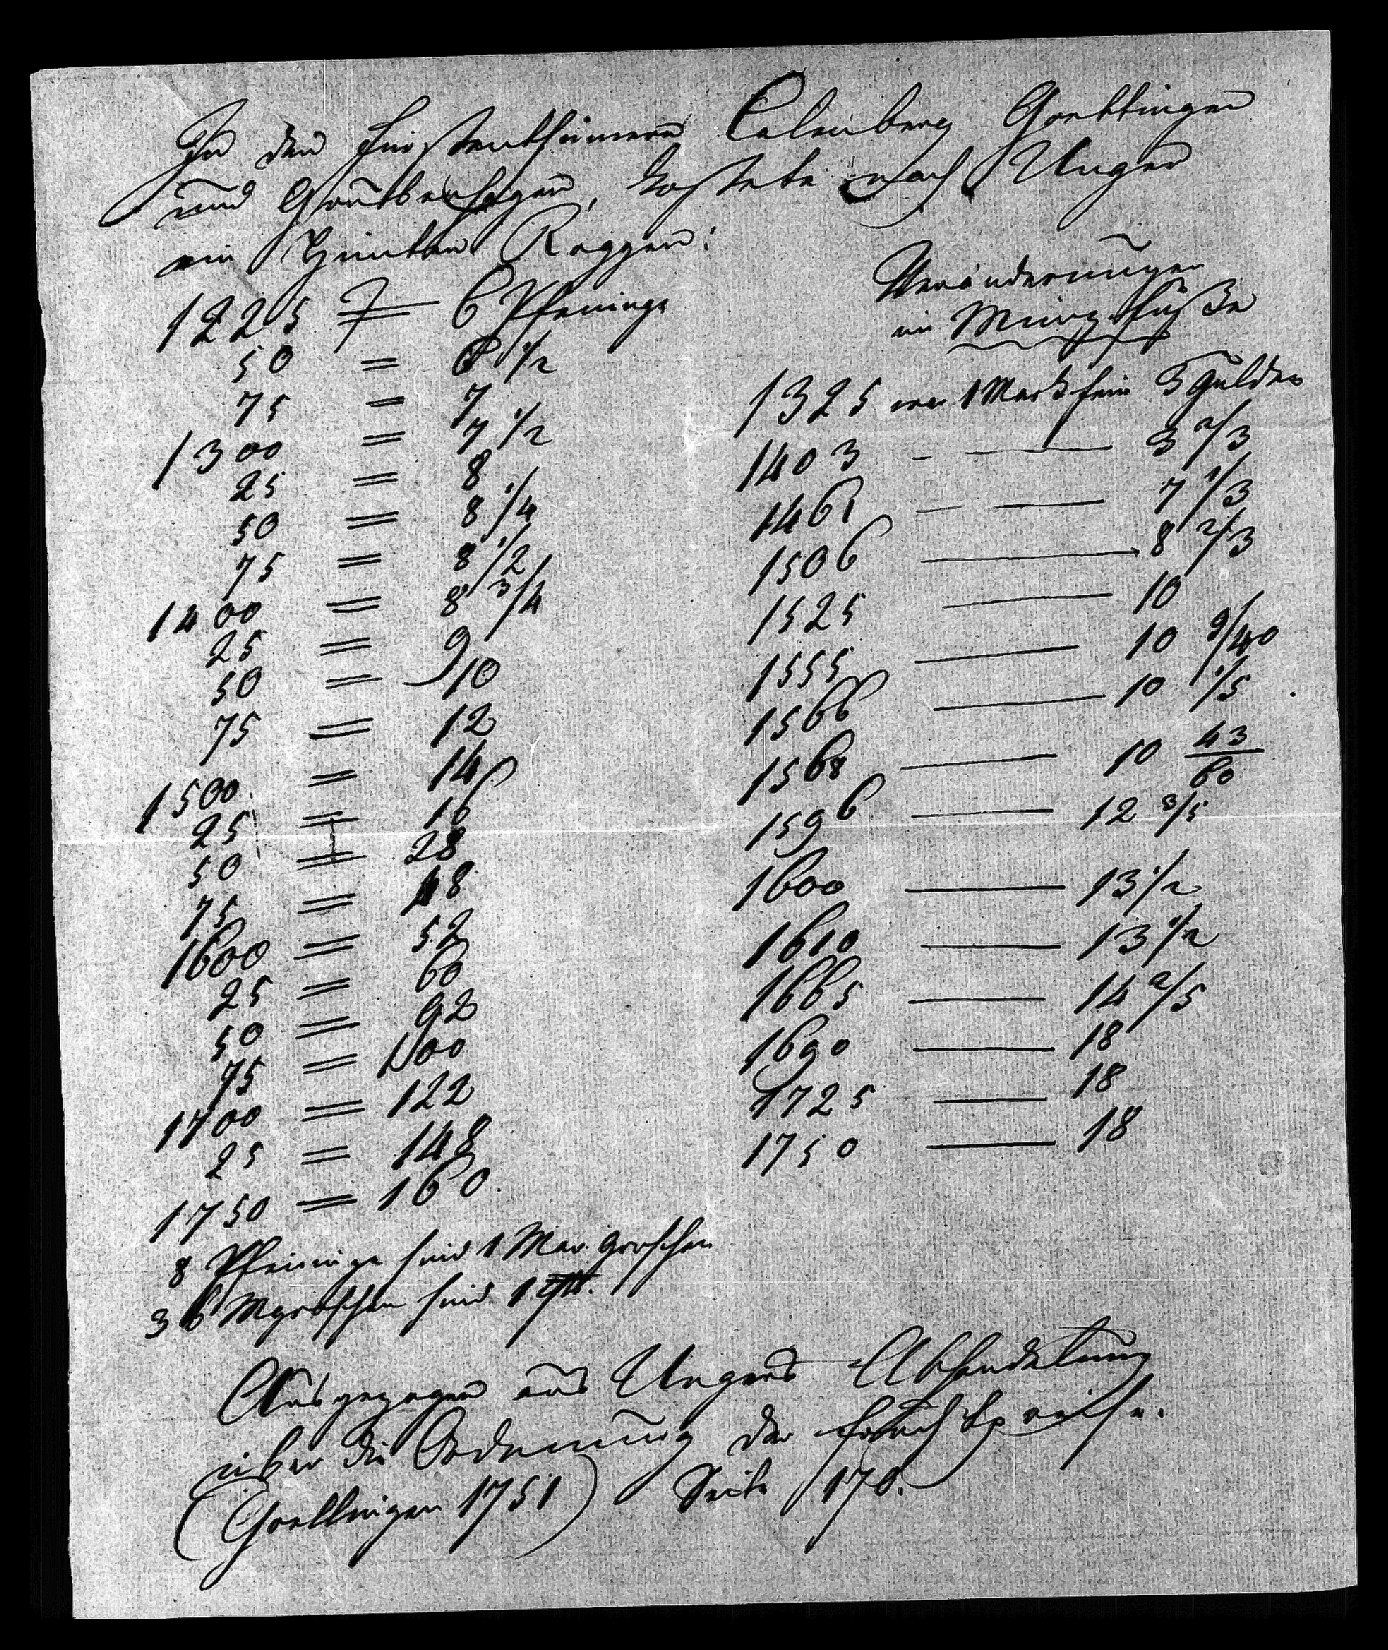 In den Fürstenthümern Calenberg Goettingen
und Grubenhagen, kostete nach Unger
ein Himbten Roggen:
1225 = 6 Pfeninge
50 = 6 1/2
75 = 7
1300 = 7 1/2
25 = 8
50 = 8 1/4
75 = 8 1/2
1400 = 8 3/4
25 = 9
50 = 10
75 = 12
1500 = 14
25 = 16
50 = 28
75 = 48
1600 = 52
25 = 60
50 = 92
75 = 100
1700 = 122
25 = 148
1750 = 160.
8 Pfeninge sind 1 Mar. groschen
36 Mgroschen sind 1 rthl.
Veränderungen
im Münzfuße
1325 war 1 Mark fein 3 Gulden
1403 — 3 2/3
1461 — 7 1/3
1506 — 8 2/3
1525 — 10
1555 — 10 9/40
1566 — 10 1/5
1568 — 10 43/60
1596 — 12 3/5
1600 — 13 1/2
1610 — 13 1/2
1665 — 14 2/5
1690 — 18
1725 — 18
1750 — 18
Ausgezogen aus Ungers Abhandelung
über die Ordnung der Fruchtpreise.
(Goettingen 1751) Seite 170.